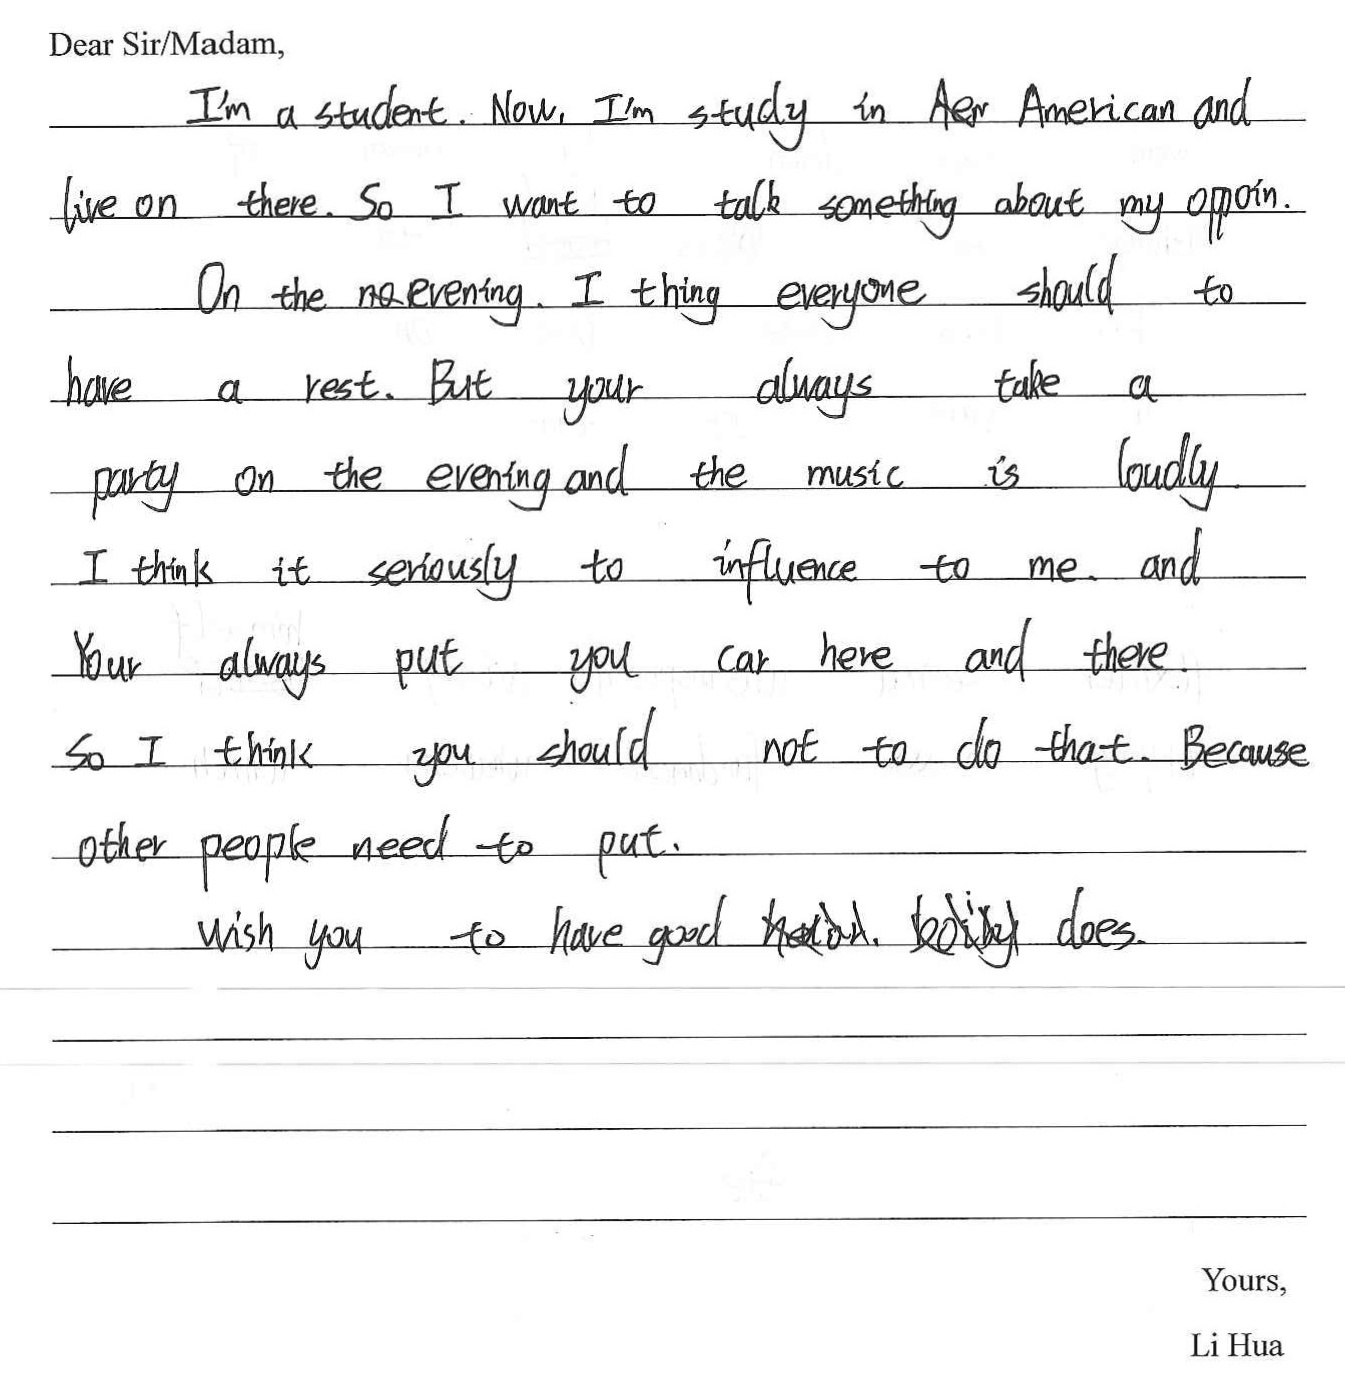 Dear Sir/Madam,
I'm a student. Now, I'm study in Aer American and
live on there. So I want to talk something about my oppoin.
On the no evening. I thing everyone should to
have a rest. But your always take a
party on the evening and the music is loudly
I think it seriously to influence to me. and
Your always put you car here and there.
So I think you should not to do that. Because
other people need to put.
Wish you to have good does.
Yours,
Li Hua